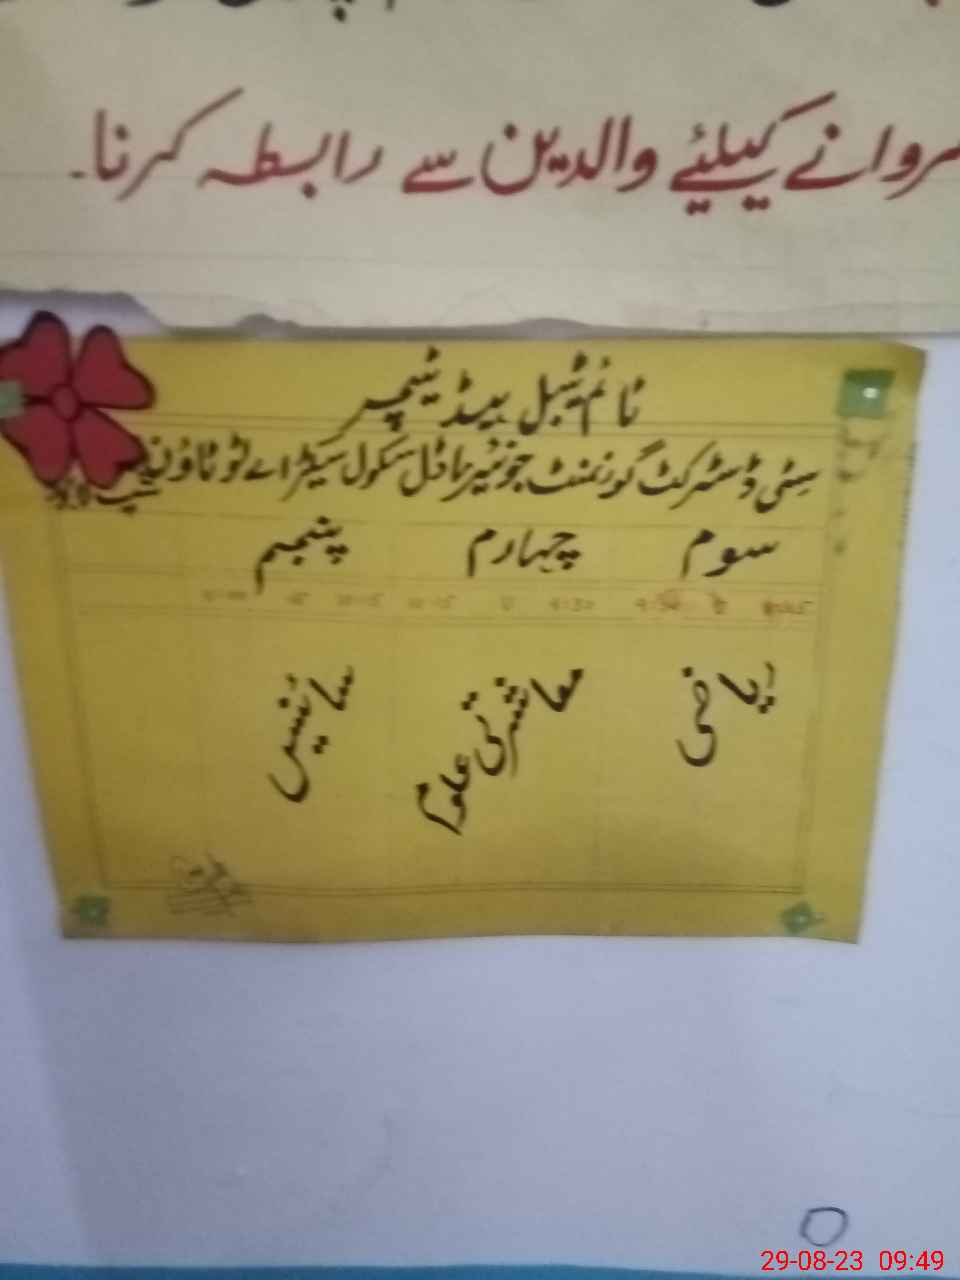 کروانے کیلئے والدین سے رابطہ کرنا۔
ٹائم ٹیبل ہیڈ ٹیچر
سٹی ڈسٹرکٹ گورنمنٹ جونئیر ماڈل سکول سیکٹر اے ٹو ٹاؤن شپ لاہور
سوم چہارم پنجم
9:30 تا 10:15
ریاضی معاشرتی علوم سائنس
29-08-23 09:49